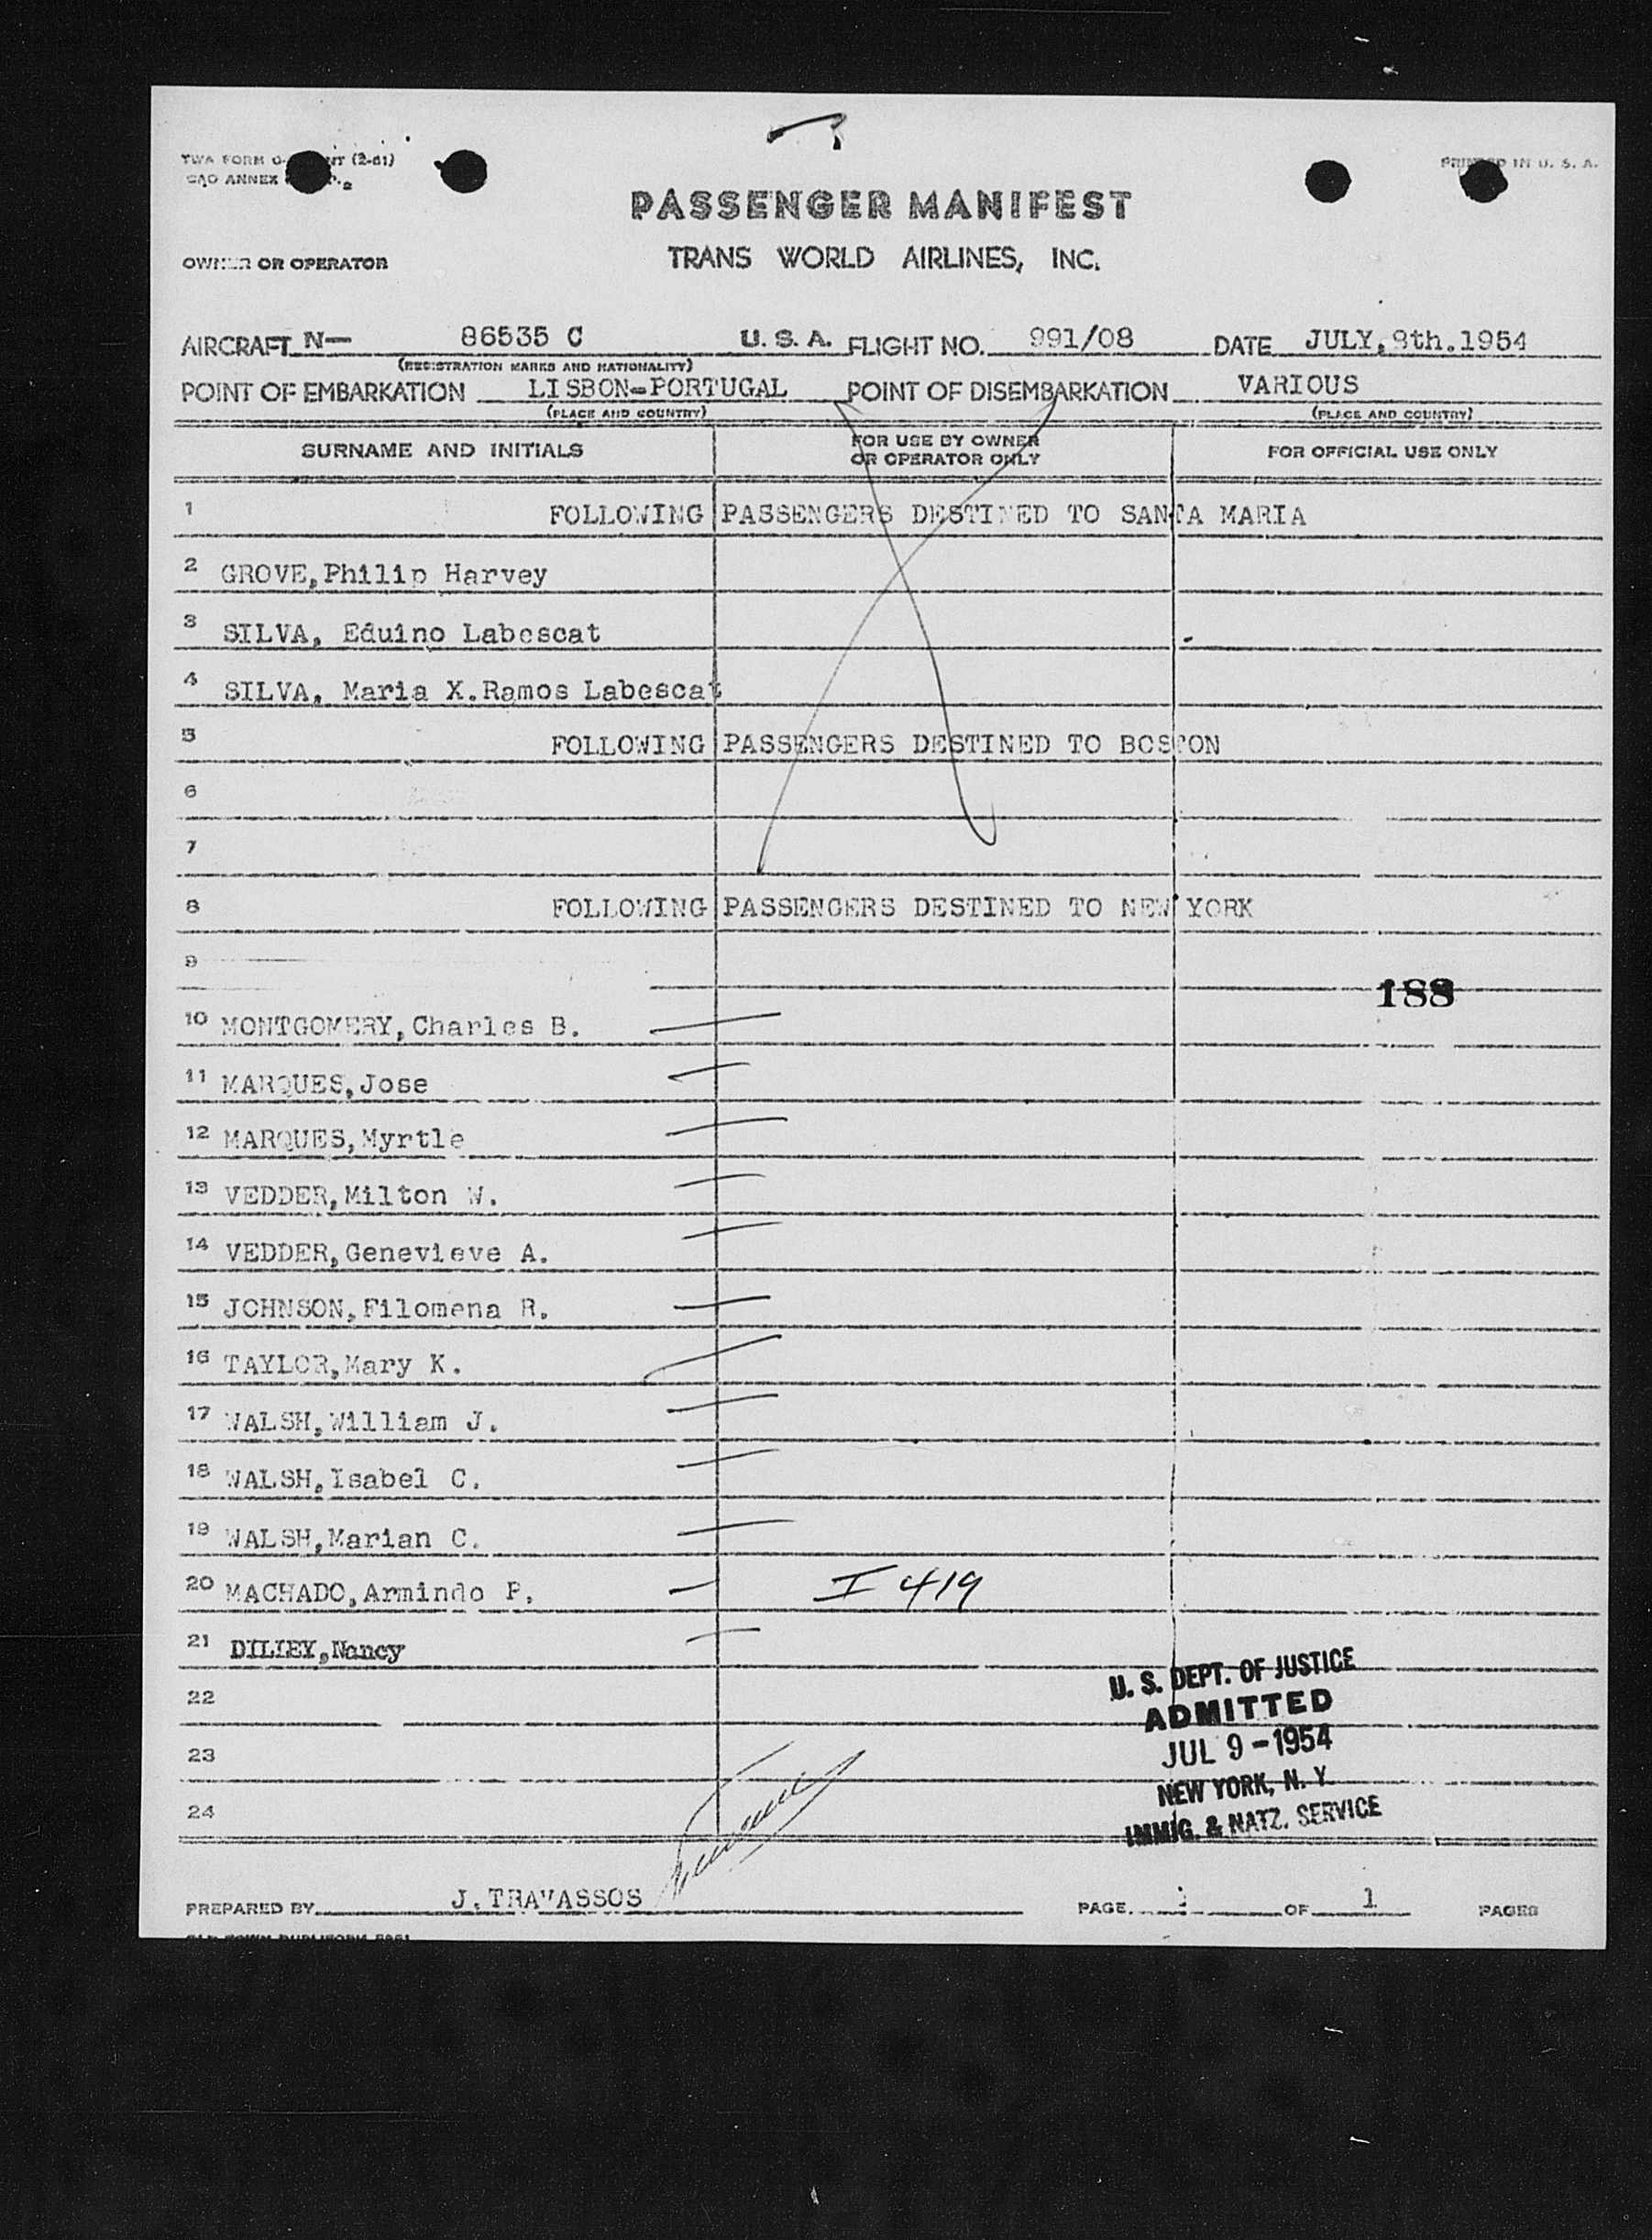 TWA FORM O- NT (2-51)
CAO ANNEX
PRINTED IN U. S. A.
PASSENGER MANIFEST
OWNER OR OPERATOR
TRANS WORLD AIRLINES, INC.
AIRCRAFT N— 86535 C U. S. A. FLIGHT NO. 991/08 DATE JULY, 8th.1954
(REGISTRATION MARKS AND NATIONALITY)
POINT OF EMBARKATION LISBON-PORTUGAL POINT OF DISEMBARKATION VARIOUS
(PLACE AND COUNTRY) (PLACE AND COUNTRY)
SURNAME AND INITIALS FOR USE BY OWNER OR OPERATOR ONLY FOR OFFICIAL USE ONLY
1 FOLLOWING PASSENGERS DESTINED TO SANTA MARIA
2 GROVE,Philip Harvey
3 SILVA, Eduino Labescat
4 SILVA, Maria X.Ramos Labescat
5 FOLLOWING PASSENGERS DESTINED TO BOSTON
6
7
8 FOLLOWING PASSENGERS DESTINED TO NEW YORK
9
188
10 MONTGOMERY,Charles B.
11 MARQUES,Jose
12 MARQUES,Myrtle
13 VEDDER,Milton W.
14 VEDDER,Genevieve A.
15 JOHNSON,Filomena R.
16 TAYLOR,Mary K.
17 WALSH,William J.
18 WALSH,Isabel C.
19 WALSH,Marian C.
20 MACHADO,Armindo P. I 419
21 DILLEY,Nancy
22
23
24
U. S. DEPT. OF JUSTICE
ADMITTED
JUL 9 - 1954
NEW YORK, N. Y.
IMMIG. & NATZ. SERVICE
PREPARED BY J.TRAVASSOS PAGE 1 OF 1 PAGES